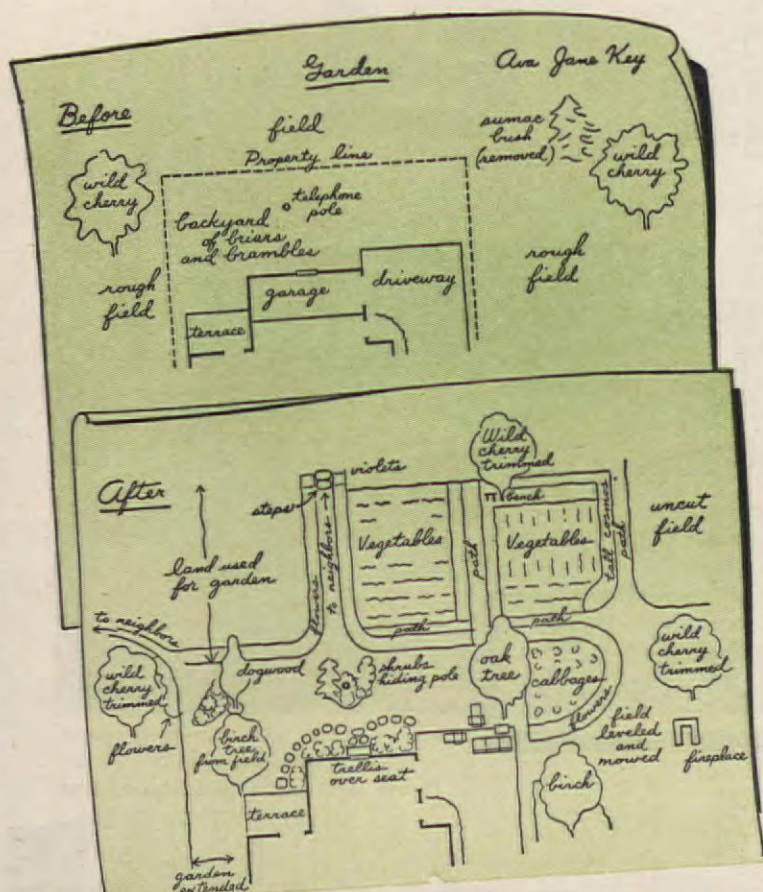 Garden
Ava Jane Key
Before
field
Property line
sumac
bush
(removed)
wild
cherry
wild
cherry
telephone
pole
backyard
of briars
and brambles
rough
field
rough
field
garage
driveway
terrace
After
violets
Wild
cherry
trimmed
steps
bench
uncut
field
land used
for garden
flowers
to neighbors
Vegetables
path
Vegetables
tall cosmos
path
to neighbors
path
path
wild
cherry
trimmed
dogwood
shrubs
hiding pole
oak
tree
cabbages
wild
cherry
trimmed
flowers
flowers
birch
tree
from field
field
leveled
and
mowed
fireplace
trellis
over seat
birch
terrace
garden
extended